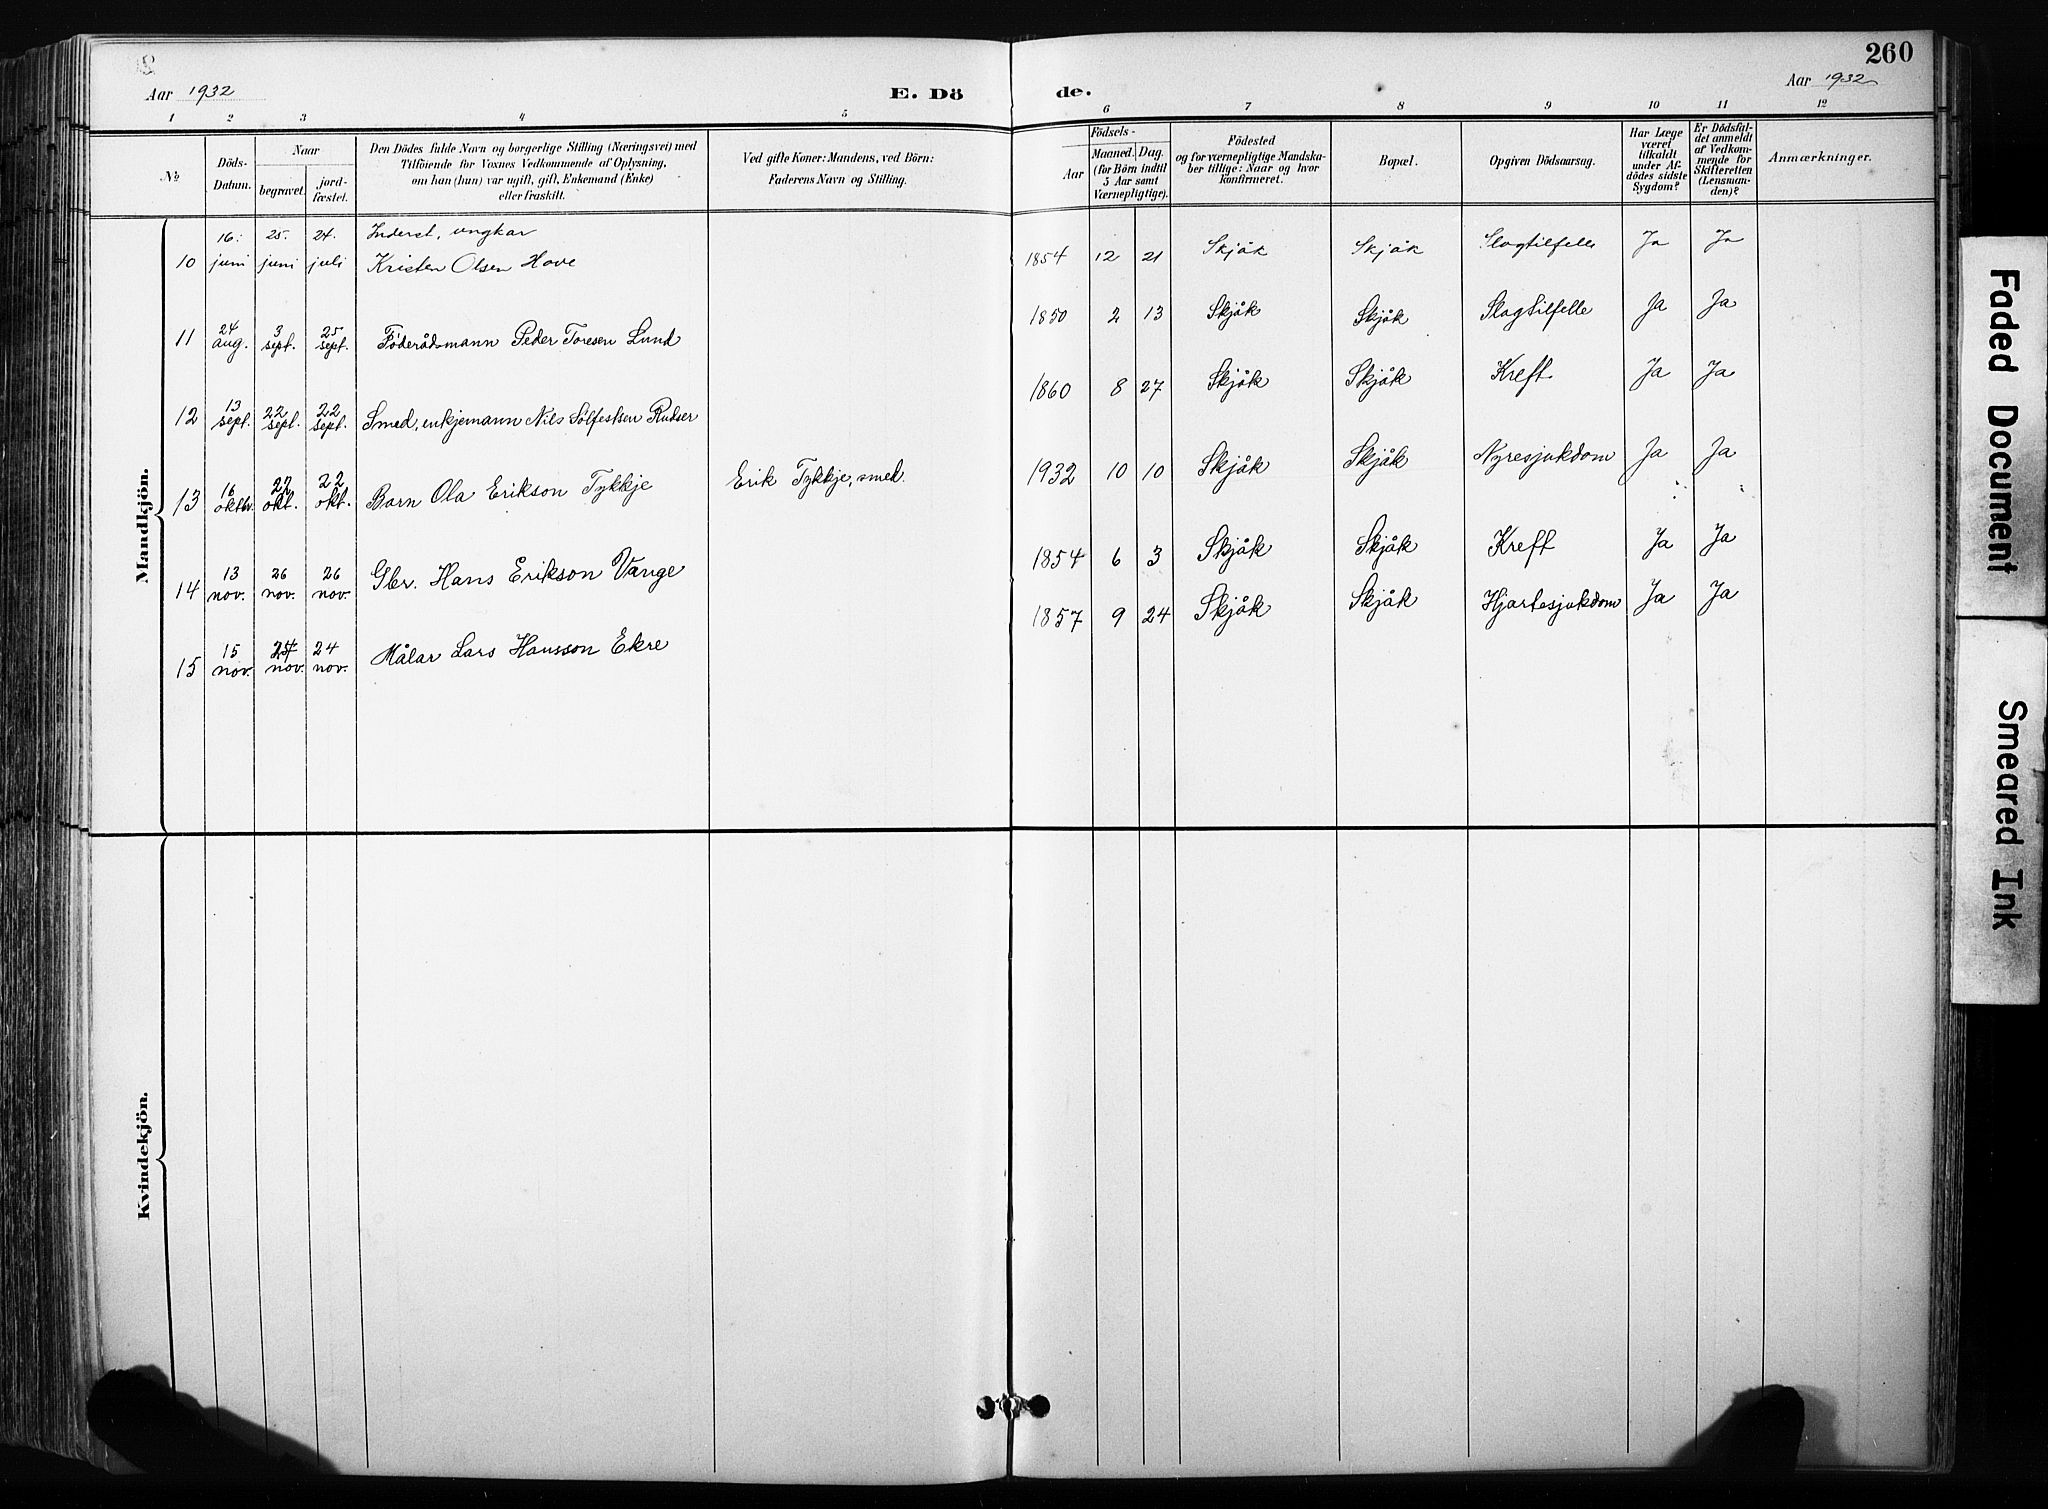 260
Aar 1932
E. Dö de.
Aar 1932
1 2 3 4 5 6 7 8 9 10 11 12
№
Döds-
Datum.
Naar
begravet.
jord-
fæstet.
Den Dödes fulde Navn og borgerlige Stilling (Næringsvei) med
Tilföiende for Voxnes Vedkommende af Oplysning,
om han (hun) var ugift, gift, Enkemand (Enke)
eller fraskilt.
Ved gifte Koner: Mandens, ved Börn:
Faderens Navn og Stilling.
Födsels-
Aar
Maaned. Dag.
(for Börn indtil
5 Aar samt
Værnepligtige).
Födested
og for værnepligtige Mandska-
ber tillige: Naar og hvor
konfirmeret.
Bopæl.
Opgiven Dödsaarsag.
Har Læge
været
tilkaldt
under Af-
dödes sidste
Sygdom?
Er Dödsfal-
det anmeldt
af Vedkom-
mende for
Skifteretten
(Lensman-
den)?
Anmærkninger.
Mandkjön.
16. 25. 24. Inderst, ungkar
10 juni juni juli Kristen Olsen Hove 1854 12 21 Skjåk Skjåk Slagtilfelle Ja Ja
24 3 25
11 aug. sept. sept. Føderådsmann Peder Toresen Lund 1850 2 13 Skjåk Skjåk Slagtilfelle Ja Ja
13 22 22
12 sept. sept. sept. Smed, enkjemann Nils Sølfestsen Rudser 1860 8 27 Skjåk Skjåk Kreft Ja Ja
16 22 22
13 oktbr. okt. okt. Barn Ola Erikson Tykkje Erik Tykkje, smed. 1932 10 10 Skjåk Skjåk Nyresjukdom Ja Ja
13 26 26
14 nov. nov. nov. Gbr. Hans Erikson Vange 1854 6 3 Skjåk Skjåk Kreft Ja Ja
15 24 24
15 nov. nov. nov. Målar Lars Hansson Ekre 1857 9 24 Skjåk Skjåk Hjartesjukdom Ja Ja
Kvindekjön.
Faded Document
Smeared Ink